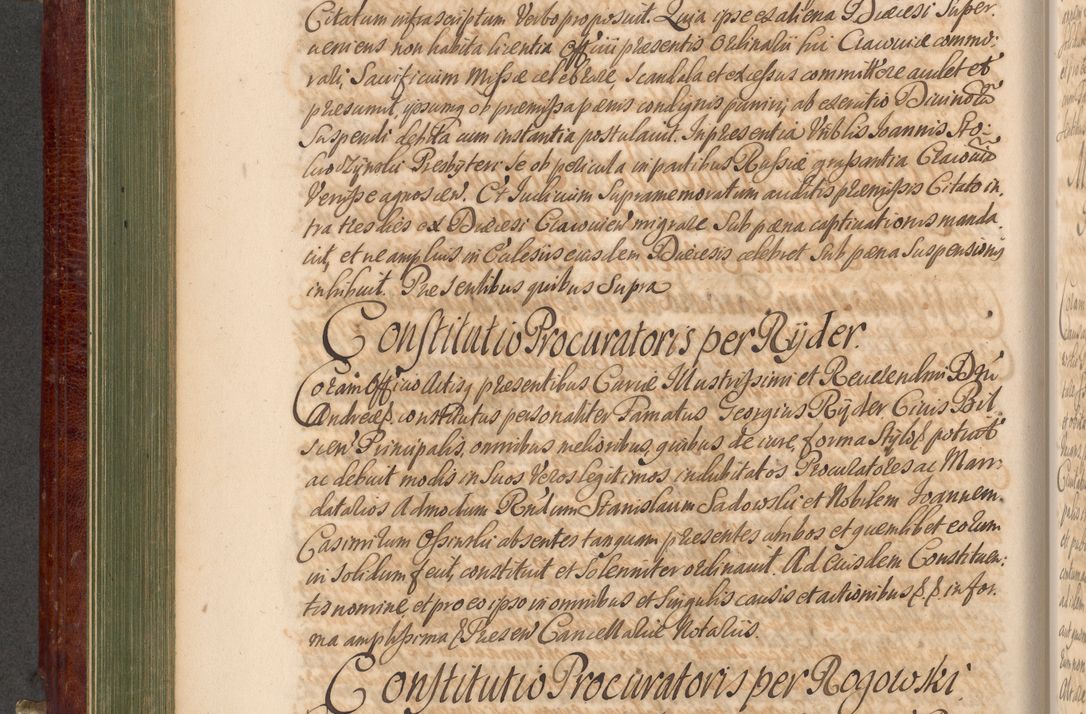 Citatum infrascriptum Verbo proposuit. Quia ipse ex aliena Diæcesi Super-
veniens non habita licentia Offii præsentis Ordinarii hic Cracoviæ commo-
rari, Sacrificium Missæ celebrare, Scandala et excessus committere audet et
præsumit, ipsumq ob præmissa pænis condignis puniri, ab exercitio Divinorū
Suspendi debita cum instantia postulavit. In præsentia Vrblis Joannis Sto-
Presbyteri Se ob pericula in partibus Russiæ grassantia Cracoviā
Venisse agnoscen. Et Judicium Supramemoratum auditis præmissis Citato in-
tra tres dies ex Diæcesi Cracovien migrare Sub pæna captivationis manda-
vit, et ne amplius in Ecclesiis eiusdem Diæcesis celebret Sub pæna Suspensionis
inhibuit. Præsentibus quibus Supra
Constitutio Procuratoris per Ryder.
Coram Offio Actisq præsentibus Curiæ Illustrissimi et Reverendmi Dni
Andreæ & constitutus personaliter Famatus Georgius Ryder Civis Bil-
scen Principalis, omnibus melioribus, quibus de iure, forma Stylo & potuit
ac debuit modis in Suos Veros legitimos indubitatos Procuratores ac Man-
datarios Admodum Rndum Stanislaum Sadowski et Nobilem Joannem
Casimirum Ossinski absentes tanquam præsentes ambos et quemlibet eorum
in Solidum fecit, constituit et Solenniter ordinavit. Ad Eiusdem Constituen-
tis nomine et pro eo ipso in omnibus et Singulis causis et actionibus & & in for-
ma amplissima & Præsen Cancellariæ Notariis.
Constitutio Procuratoris per Rogowski